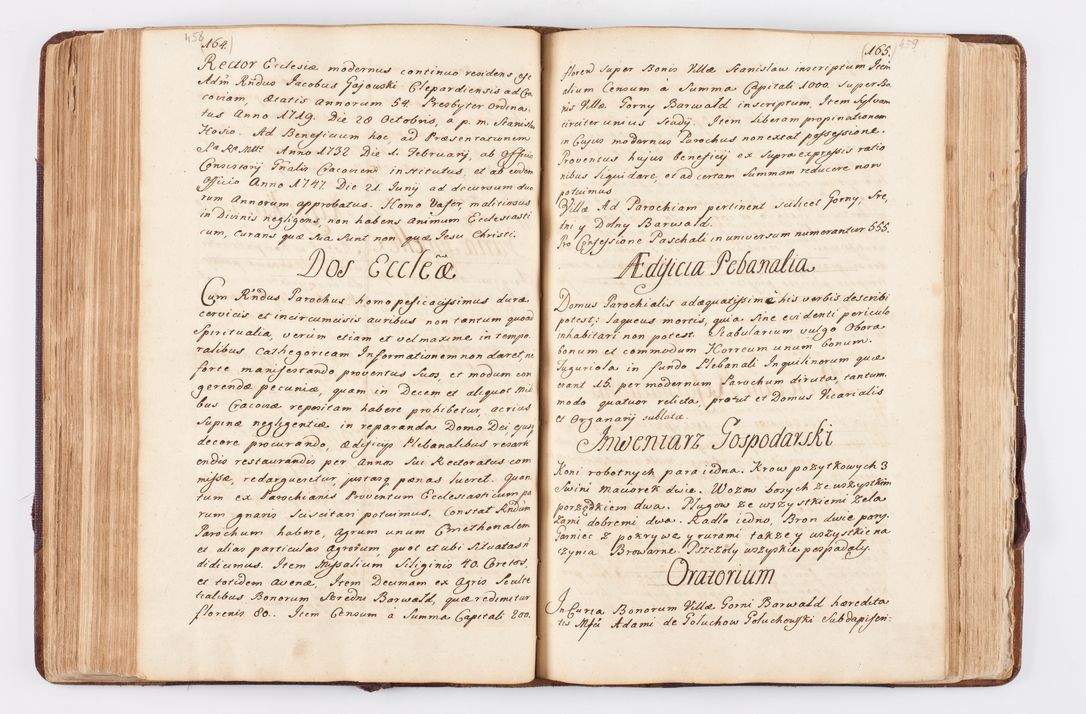 458
164.
Rector Ecclesiæ modernus continuo residens est
Adm Rndus Jacobus Gajowski Clepardiensis ad Cra
coviam, ætatis Annorum 54. Presbyter ordina
tus Anno 1719. Die 28 Octobris, p. m. Stanislao
Hosio. Ad Beneficium hoc, ad Præsentationem
Sa Ræ Mttis Anno 1732 Die 1. Februarij, ab Officio
Consistorij Gnalis Cracovien institutus, et ab eodem
Officio Anno 1747 Die 21. Junij ad decursum duo
rum Annorum approbatus. Homo Vafer, malitiosus
in Divinis negligens, non habens Animum Ecclesiasti
cum, curans quæ sua sunt non quæ Jesu Christi.
Dos Eccleæ
Cum Rndus Parochus homo pessicacissimus duræ
cervicis et incircumcisis auribus non tantum quoad
Spiritualia, verum etiam et vel maxime in tempo
ralibus Cathegoricam Informationem non daret, ne
forte manifestando proventus suos, et modum con
gerendæ pecuniæ, quam in Decem et aliquot Mil
bus Cracoviæ repositam habere prohibetur, acrius
supinæ negligentiæ in reparanda Domo Dei ejusq
decore procurando, ædificijs Plebanalibus resarci
endis restaurandis per Annos sui Rectoratus com
missæ, redargueretur, justasq pænas lueret. Quan
tum ex Parochianis Proventum Ecclesiasticum pa
rum gnaris suscitari potuimus, Constat Rndum
Parochum habere, agrum unum Cmethonalem
et alias particulas agrorum, quot et ubi situatas n
didicimus. Item Missalium Siliginis 40. Coretos,
et totidem avenæ, Item Decimam ex Agris Sculte
tialibus Bonorum Seredni Barwald, quæ redimitur
florenis 80. Item Censum à Summa Capitali 200.
459
165.
floren super Bonis Villæ Stanislaw inscriptum Item
alium Censum à Summa Capitali 1000 super Bo
nis Villæ Gorny Barwald inscriptum, Item Sylvam
circiter unius Stadij. Item liberam propinationem
in Cujus modernus Parochus non extat possessione.
Proventus hujus beneficij ex supra expressis ratio
nibus liquidare, et ad certam Summam reducere non
potuimus
Villæ Ad Parochiam pertinent scilicet Gorny, Sre,
tni y Dolny Barwald.
Pro Confessione Paschali in universum numerantur 555.
Ædificia Plebanalia
Domus Parochialis adæquatissimè his verbis describi
potest: laqueus mortis, quia sine evidenti periculo
inhabitari non potest. Stabularium vulgo Obora
bonum et commodum Horreum unum bonum.
Tuguriola in fundo Plebanali Inquilinorum quæ
erant 15. per modernum Parochum diruta, tantum,
modo quatuor relicta, prout et Domus Vicarialis
et Organarij sublatæ.
Inwentarz Gospodarski
Koni robotnych para iedna. Krow pożytkowych 3
Swini maciorek dwie. Wozow bosych ze wszystkim
porządkiem dwa. Plugow ze wszystkiemi żela
zami dobremi dwa. Radło iedno, Bron dwie pary.
Garniec z pokrywą y rurami także y wszystkie na
czynia Browarne. Pszczoły wszyskie pospadały.
Oratorium
In Curia Bonorum Villæ Gorni Barwald hæredita
tis Mfci Adami de Goluchow Goluchowski Subdapifen: